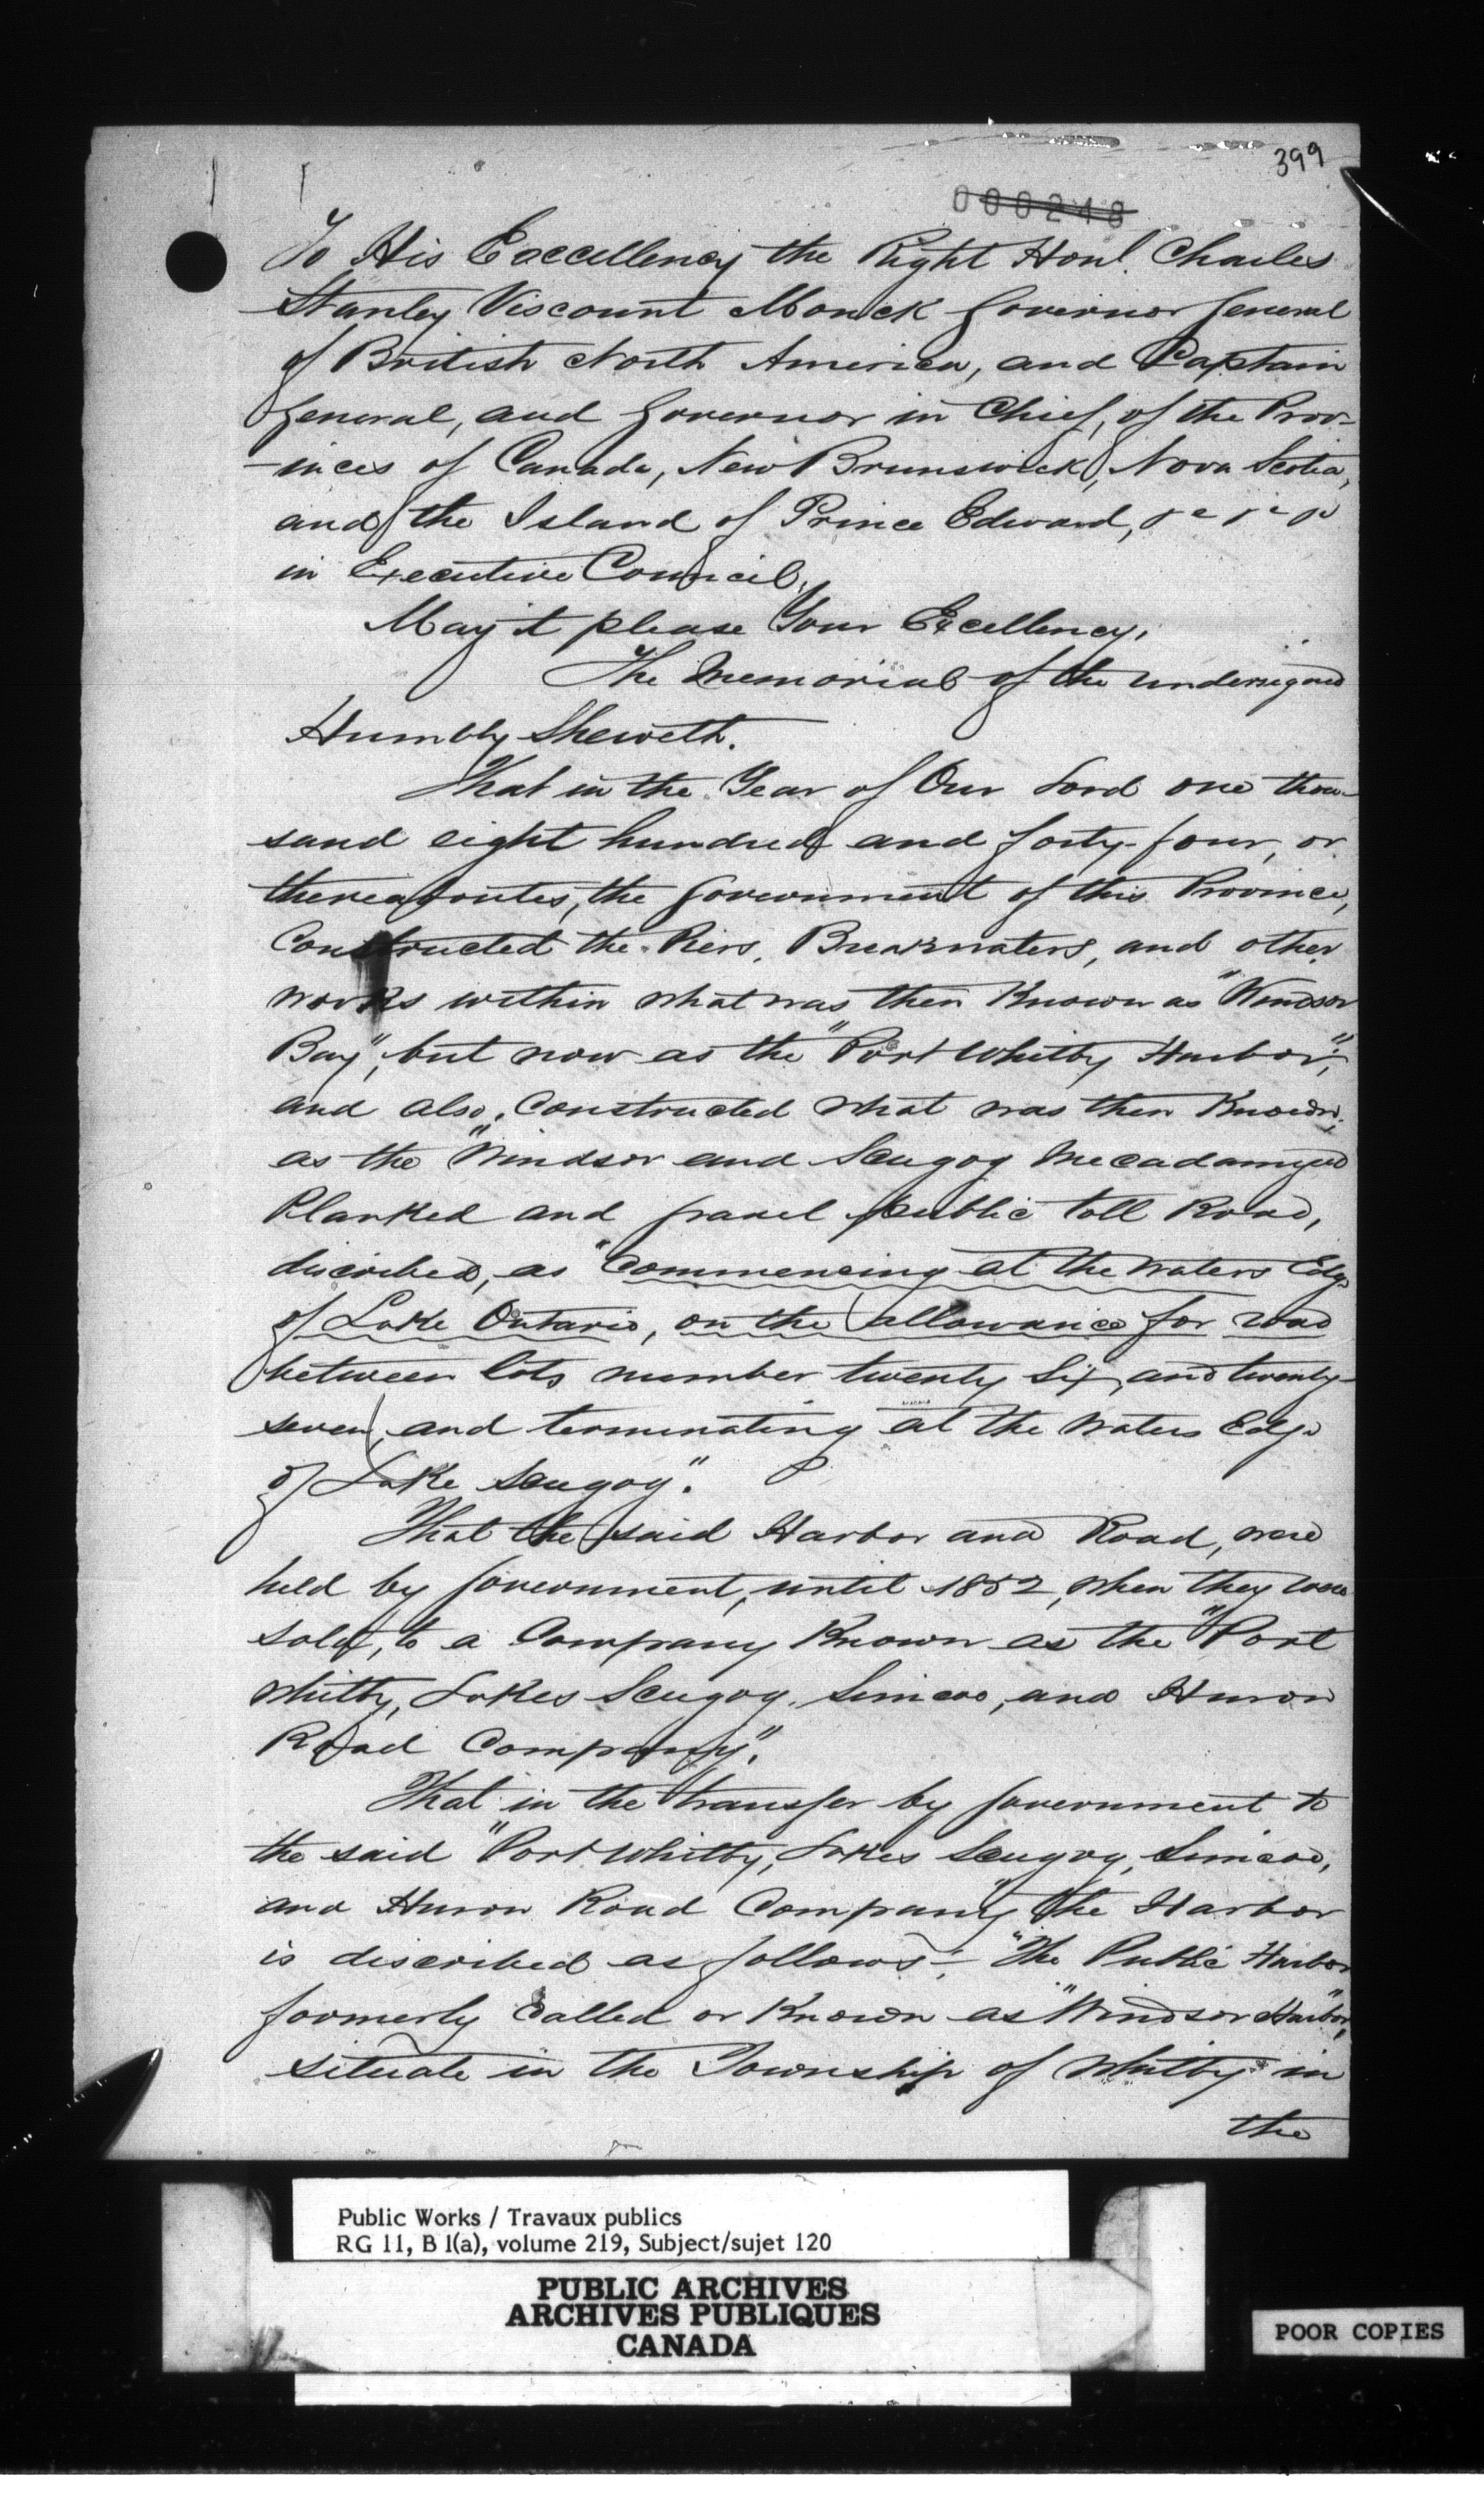 399
000248
To His Excellency the Right Honl. Charles
Stanley Viscount Monck Governor General
of British North America, and Captain
General, and Governor in Chief, of the Prov-
-inces of Canada, New Brunswick, Nova Scotia,
and the Island of Prince Edward, &c &c &c
in Executive Council.
May it please Your Excellency,
The Memorial of the undersigned
Humbly Sheweth.
That in the Year of Our Lord one thou-
sand eight hundred and forty-four, or
thereabouts, the Government of this Province,
Constructed the Piers, Breakwaters, and other
works within what was then Known as "Windsor
Bay", but now as the "Port Whitby Harbor";
and also, Constructed what was then Known,
as the "Windsor and Scugog Mecadamyed
Planked and gravel public toll Road,
discribed, as "Commencing at the Waters Edge
of Lake Ontario, on the allowance for road
between lots number twenty Six, and twenty-
seven, and terminating at the Waters Edge
of Lake Scugog".
That the said Harbor and Road, were
held by Government, until 1852, when they were
sold, to a Company Known as the "Port
Whitby, Lakes Scugog, Simcoe, and Huron
Road Company".
That in the transfer by Government to
the said "Port Whitby, Lakes Scugog, Simcoe,
and Huron Road Company" the Harbor
is discribed as follows:- "The Public Harbor
formerly Called or Known as "Windsor Harbor",
situate in the Township of Whitby in
the
Public Works / Travaux publics
RG 11, B 1(a), volume 219, Subject/sujet 120
PUBLIC ARCHIVES
ARCHIVES PUBLIQUES
CANADA
POOR COPIES